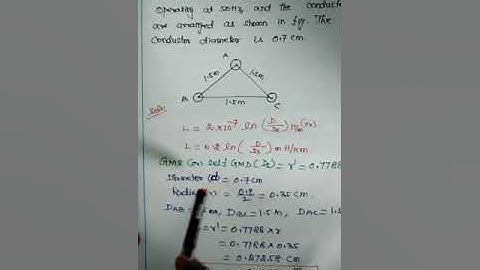 operating at 50Hz and the conduct
are arranged as shown in fig. The
Conductor diameter is 0.7cm
A
1.5m
1.5m
B
1.5m
C
Soln:
L = 2×10⁻⁷ ln (D/Ds) H/m (or)
L = 0.2 ln (D/Ds) mH/km
GMR (or) Self GMD (Ds) = r' = 0.7788
Diameter (d) = 0.7cm
Radius = 0.7/2 = 0.35 cm.
DAB = DBC = 1.5m, DAC = 1.5
= r' = 0.7788 × r
= 0.7788 × 0.35
= 0.27258 cm